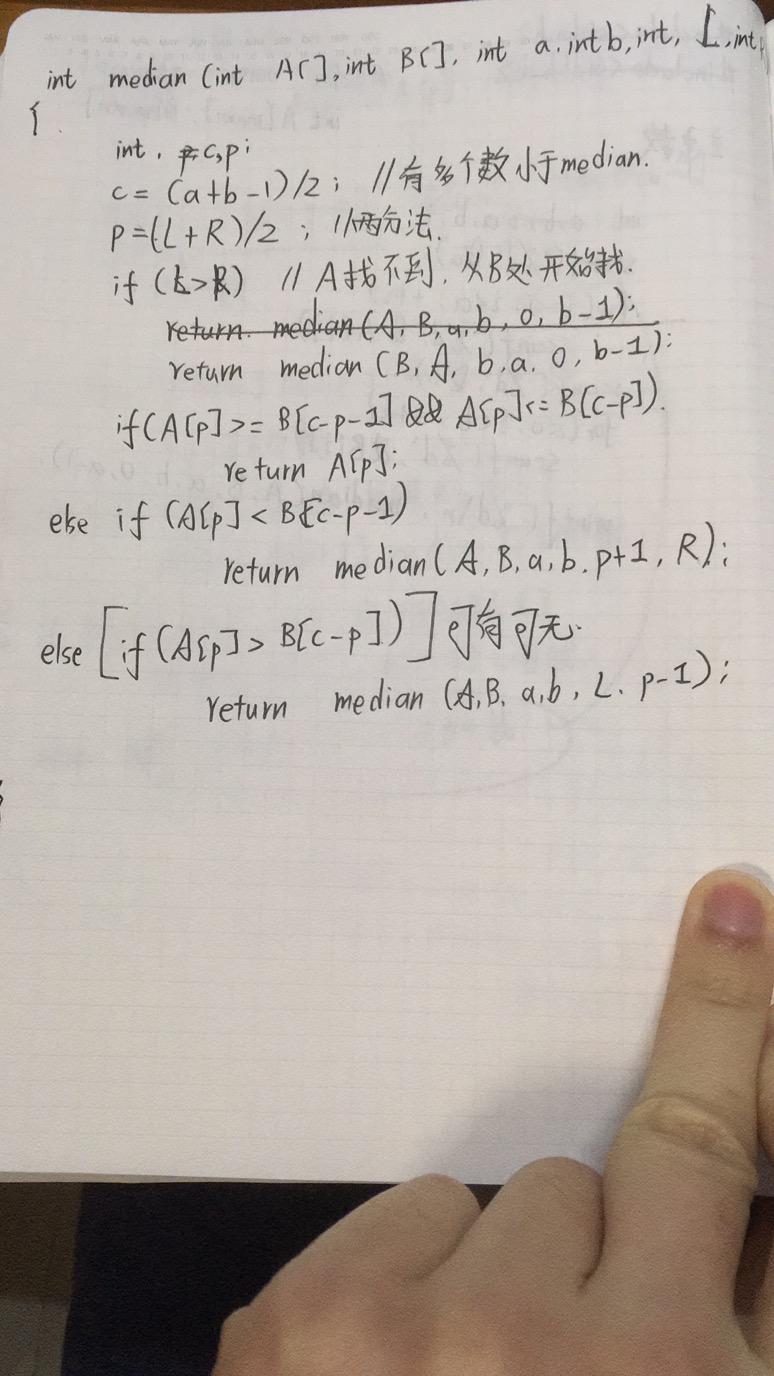 int median (int A[], int B[], int a. int b, int, L, int
{
int, c, p;
c = (a+b-1)/2; //有多个数小于median.
p=(L+R)/2; //两分法.
if (L>R) // A找不到, 从B处开始找.
return. median(A, B, a, b, 0, b-1);
return median (B, A, b, a, 0, b-1);
if(A[p]>= B[c-p-1] && A[p]<= B[c-p]).
return A[p];
else if (A[p] < B[c-p-1)
return median(A, B, a, b, p+1, R);
else [if (A[p] > B[c-p])] 可有可无.
return median (A, B, a, b, L, p-1);
}